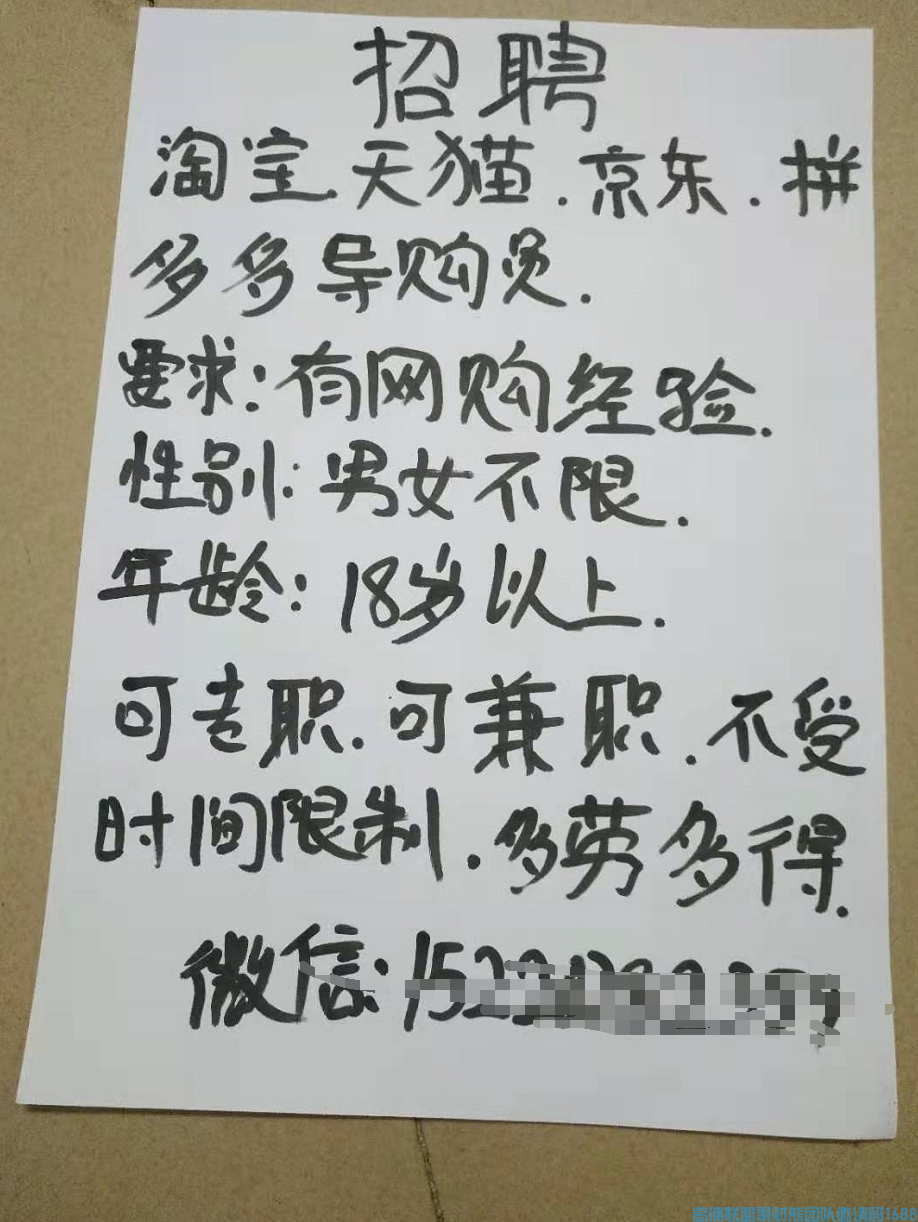 招聘
淘宝.天猫.京东.拼
多多导购员.
要求:有网购经验.
性别:男女不限.
年龄:18岁以上.
可专职.可兼职.不受
时间限制.多劳多得.
微信:1522